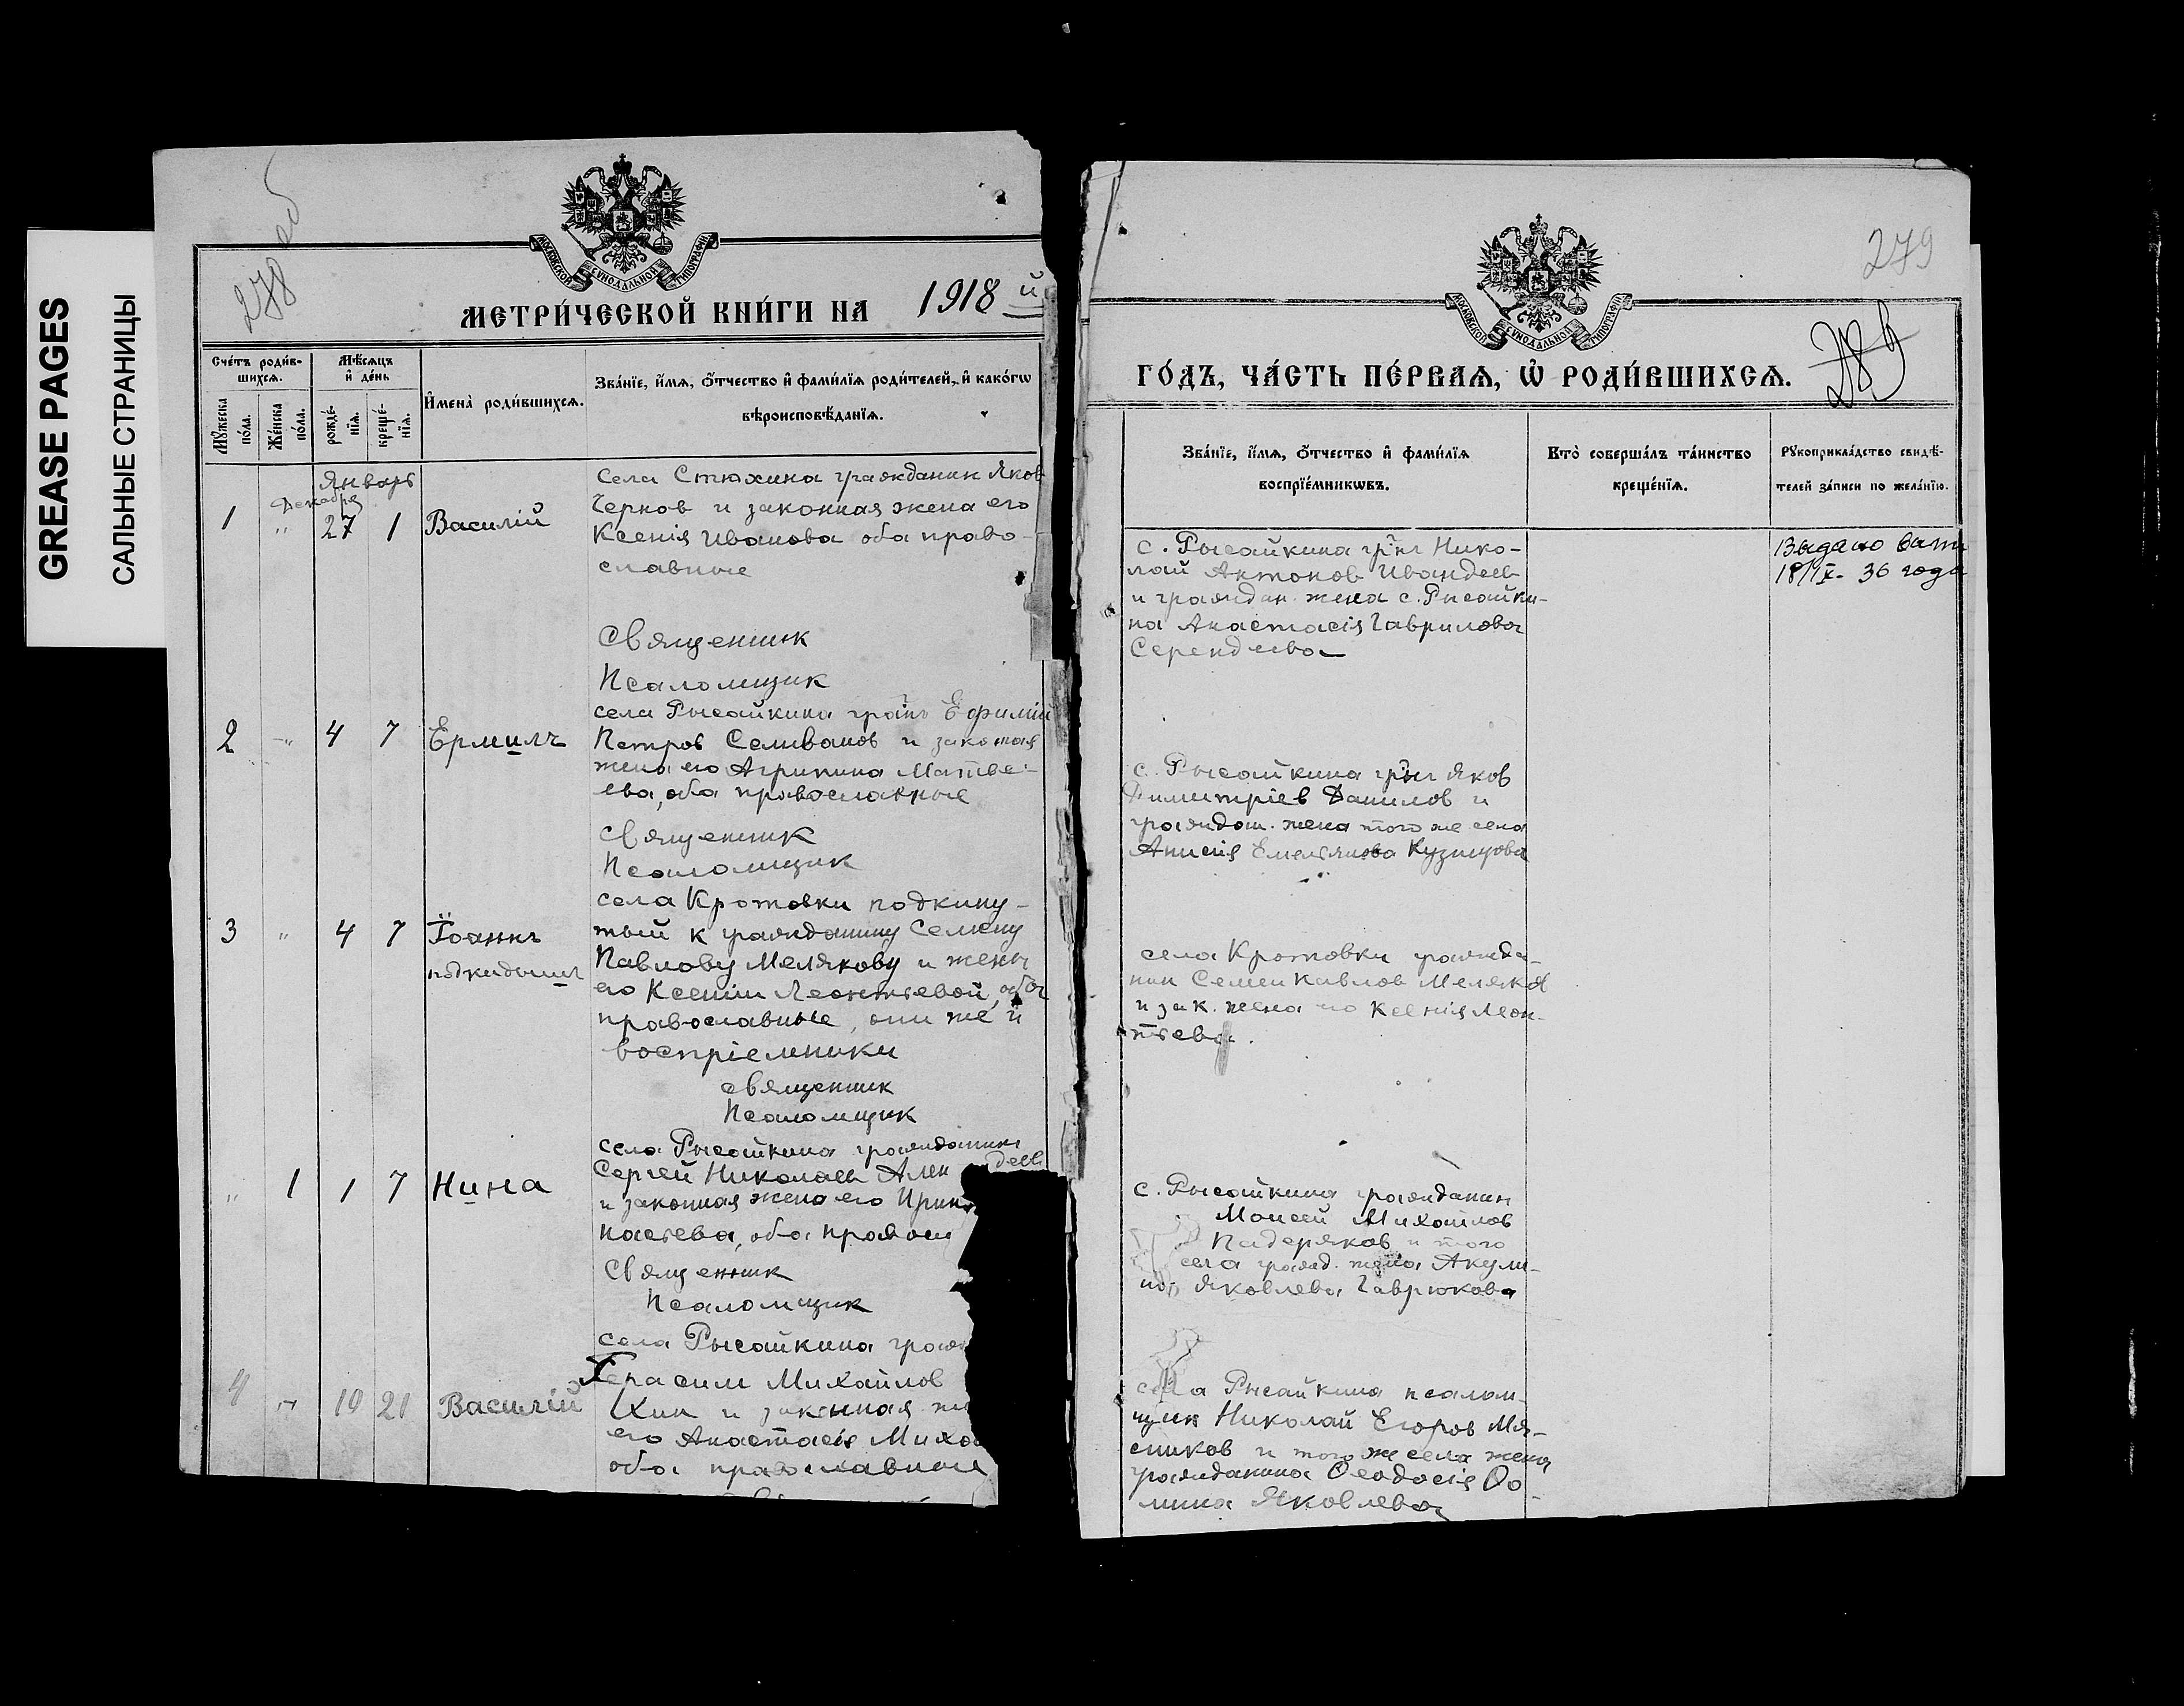 GREASE PAGES
САЛЬНЫЕ СТРАНИЦЫ
278 об
МОСКОВСКОЙ СѴНОДАЛЬНОЙ ТИПОГРАФІИ
МЕТРИ́ЧЕСКОЙ КНИ́ГИ НА 1918 й
Сче́тъ роди́в-
шихся.
Мѣ́сяцъ
и҆ де́нь
И҆мена̀ роди́вшихся.
Зва́нїе, и҆́мя, ѻ҆́тчество и҆ фами́лїя роди́телей, и҆ како́гѡ
вѣроисповѣ́данїя.
Мꙋ́жеска
по́ла.
Же́нска
по́ла.
рожде́-
нїя.
креще́-
нїя.
Январь
Декабря
1 " 27 1 Василій
Села Стюхина гражданин Яков
Чернов и законная жена его
Ксенія Иванова оба право-
славные
Священник
Псаломщик
2 -"- 4 7 Ермилъ
села Рысайкина гр-нъ Ефимій
Петров Селиванов и законая
жена его Агрипина Матве-
ева, оба православные
Священник
Псаломщик
3 " 4 7 Іоаннъ
подкидышъ
села Кротовки подкину-
тый к гражданину Семену
Павлову Мелякову и жены
его Ксеніи Леонтьевой, оба
православные, они же и
воспріемники
священник
Псаломщик
" 1 1 7 Нина
села Рысайкина гражданинъ
Сергей Николаев Ален деев
и законная жена его Ирин
настева, оба правосл
Священник
Псаломщик
4 -"- 19 21 Василій
села Рысайкина граж
Герасим Михайлов
кин и законная же
его Анастасія Михо
оба православные
279
289
МОСКОВСКОЙ СѴНОДАЛЬНОЙ ТИПОГРАФІИ
ГО́ДЪ, ЧА́СТЬ ПЕ́РВАЯ, Ѡ҆ РОДИ́ВШИХСЯ.
Зва́нїе, и҆́мя, ѻ҆́тчество и҆ фами́лїя
воспрїе́мникѡвъ.
Кто̀ соверша́лъ та́инство
креще́нїя.
Рꙋкоприкла́дство свидѣ́-
телей за́писи по жела́нїю.
с. Рысайкина гр-нъ Нико-
лай Антонов Ивандеев
и граждан. жена с. Рысайки-
на Анастасія Гаврилова
Серендеева
Выдано
18/IX - 36 года
с. Рысайкина гр-нъ Яков
Димитріев Данилов и
граждан. жена того же села
Анисія Емельянова Кузнецова
села Кротовки гражда-
нин Семен Павлов Меляков
и зак. жена его Ксенія Леон-
тьева.
с. Рысайкина гражданин
Моисей Михайлов
Падеряков и того
села гражд. жена Акули-
на Яковлева Гаврюкова
села Рысайкина псалом-
щик Николай Егоров Мя-
сников и того же села жена
гражданина Ѳеодосія Ѳо-
мина Яковлева